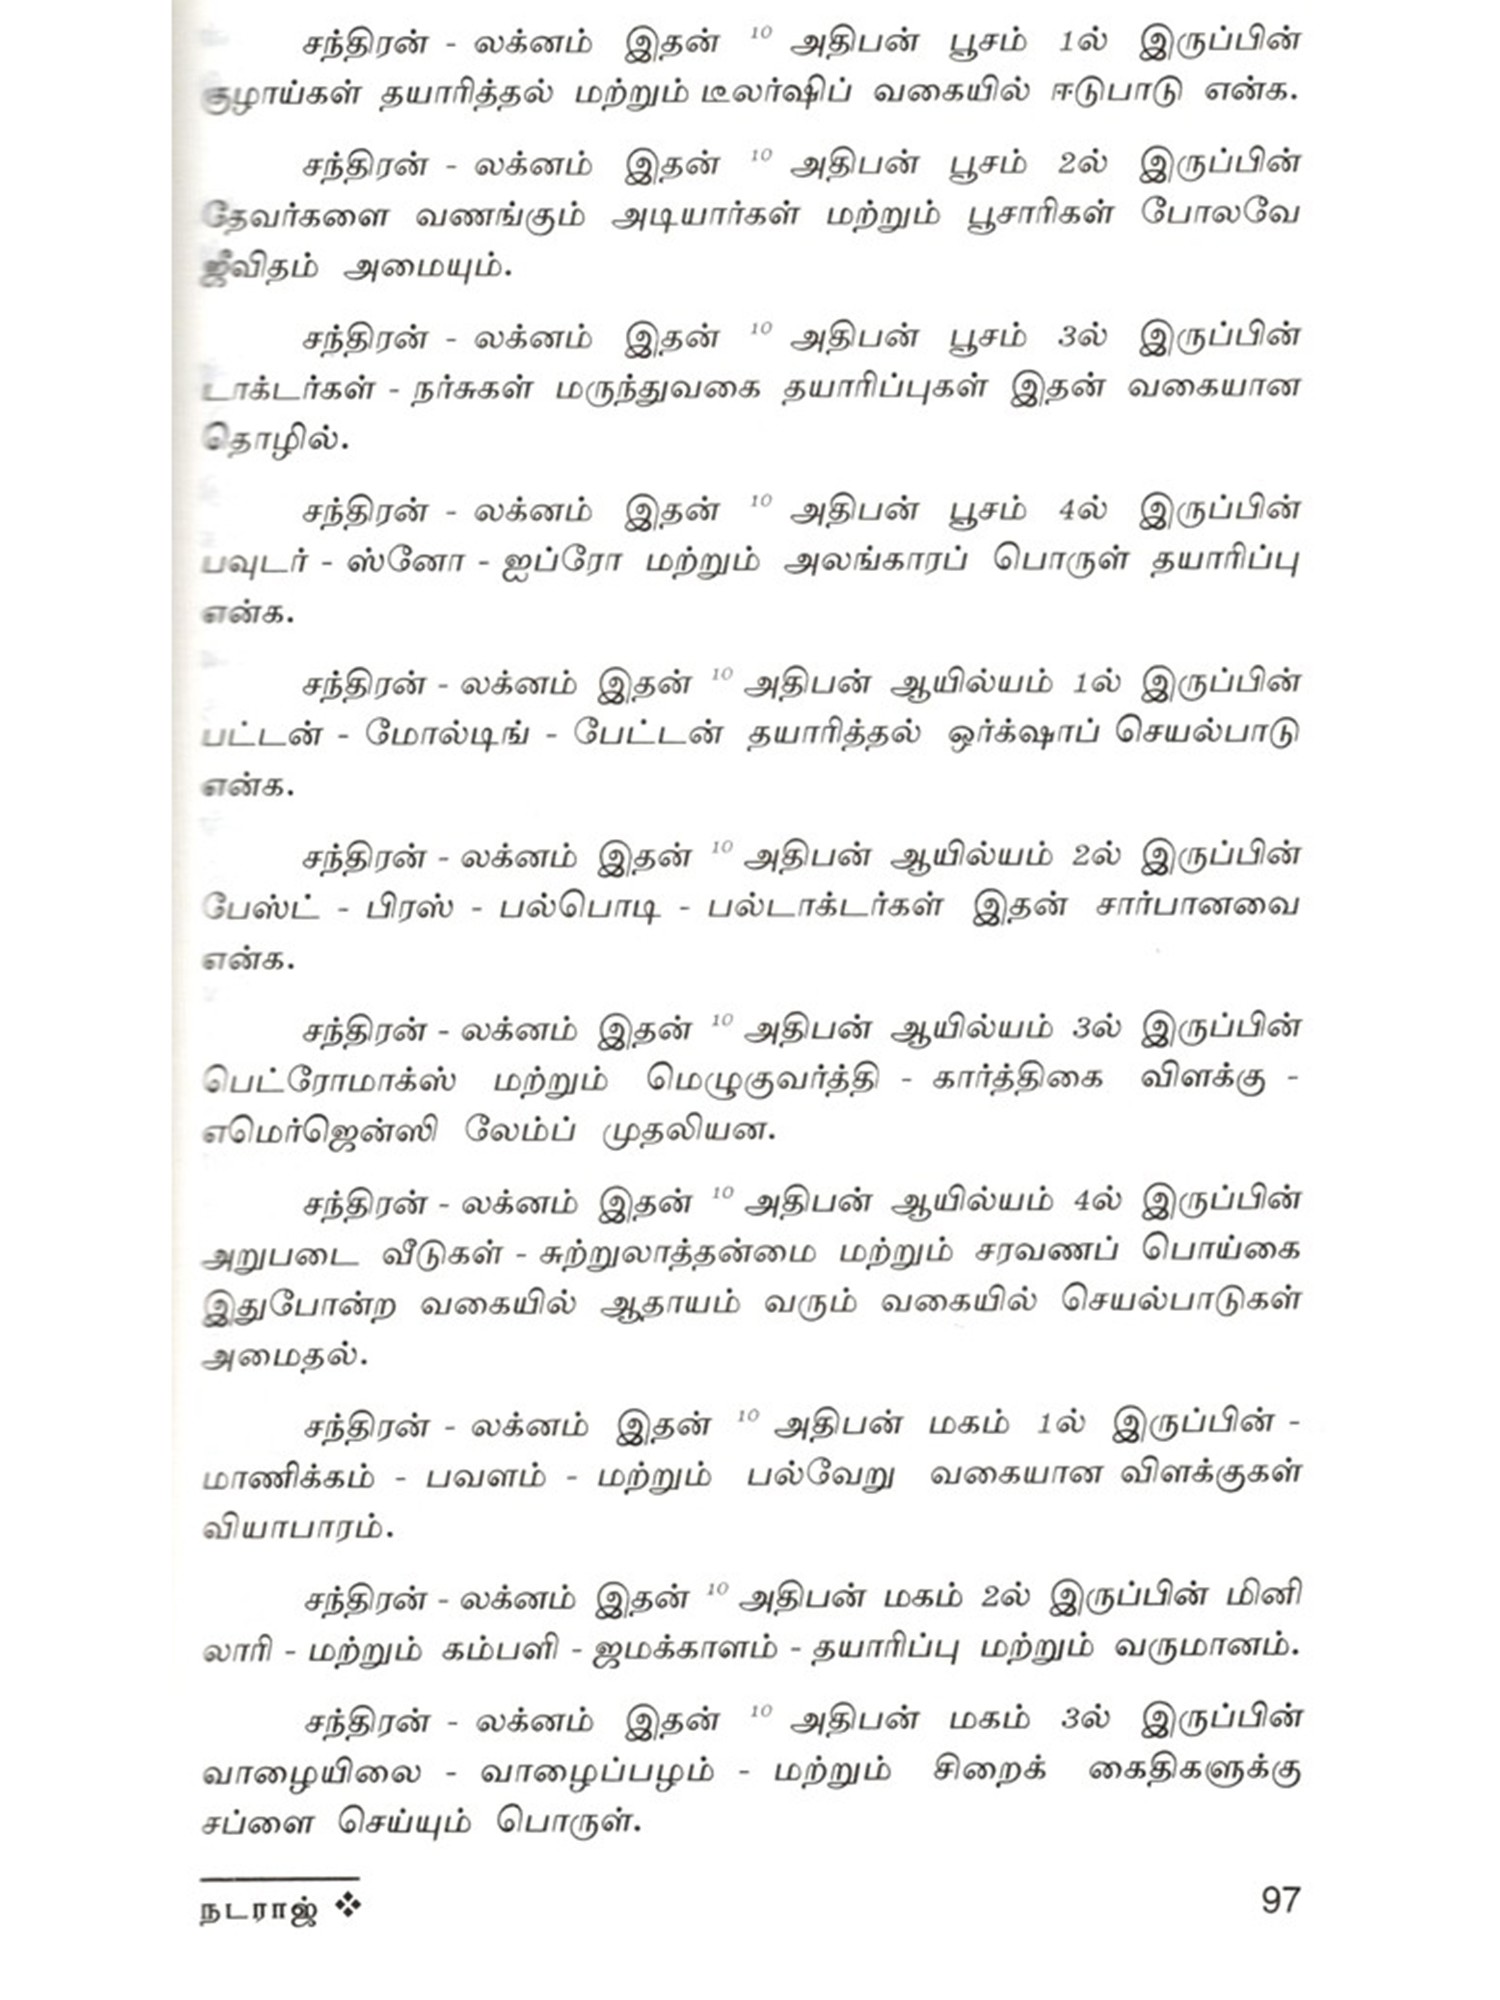 சந்திரன் - லக்னம் இதன் 10 அதிபன் பூசம் 1ல் இருப்பின்
குழாய்கள் தயாரித்தல் மற்றும் டீலர்ஷிப் வகையில் ஈடுபாடு என்க.
சந்திரன் - லக்னம் இதன் 10 அதிபன் பூசம் 2ல் இருப்பின்
தேவர்களை வணங்கும் அடியார்கள் மற்றும் பூசாரிகள் போலவே
ஜீவிதம் அமையும்.
சந்திரன் - லக்னம் இதன் 10 அதிபன் பூசம் 3ல் இருப்பின்
டாக்டர்கள் - நர்சுகள் மருந்துவகை தயாரிப்புகள் இதன் வகையான
தொழில்.
சந்திரன் - லக்னம் இதன் 10 அதிபன் பூசம் 4ல் இருப்பின்
பவுடர் - ஸ்னோ - ஐப்ரோ மற்றும் அலங்காரப் பொருள் தயாரிப்பு
என்க.
சந்திரன் - லக்னம் இதன் 10 அதிபன் ஆயில்யம் 1ல் இருப்பின்
பட்டன் - மோல்டிங் - பேட்டன் தயாரித்தல் ஒர்க்ஷாப் செயல்பாடு
என்க.
சந்திரன் - லக்னம் இதன் 10 அதிபன் ஆயில்யம் 2ல் இருப்பின்
பேஸ்ட் - பிரஸ் - பல்பொடி - பல்டாக்டர்கள் இதன் சார்பானவை
என்க.
சந்திரன் - லக்னம் இதன் 10 அதிபன் ஆயில்யம் 3ல் இருப்பின்
பெட்ரோமாக்ஸ் மற்றும் மெழுகுவர்த்தி - கார்த்திகை விளக்கு -
எமெர்ஜென்ஸி லேம்ப் முதலியன.
சந்திரன் - லக்னம் இதன் 10 அதிபன் ஆயில்யம் 4ல் இருப்பின்
அறுபடை வீடுகள் - சுற்றுலாத்தன்மை மற்றும் சரவணப் பொய்கை
இதுபோன்ற வகையில் ஆதாயம் வரும் வகையில் செயல்பாடுகள்
அமைதல்.
சந்திரன் - லக்னம் இதன் 10 அதிபன் மகம் 1ல் இருப்பின் -
மாணிக்கம் - பவளம் - மற்றும் பல்வேறு வகையான விளக்குகள்
வியாபாரம்.
சந்திரன் - லக்னம் இதன் 10 அதிபன் மகம் 2ல் இருப்பின் மினி
லாரி - மற்றும் கம்பளி - ஜமக்காளம் - தயாரிப்பு மற்றும் வருமானம்.
சந்திரன் - லக்னம் இதன் 10 அதிபன் மகம் 3ல் இருப்பின்
வாழையிலை - வாழைப்பழம் - மற்றும் சிறைக் கைதிகளுக்கு
சப்ளை செய்யும் பொருள்.
நடராஜ் ❖ 97